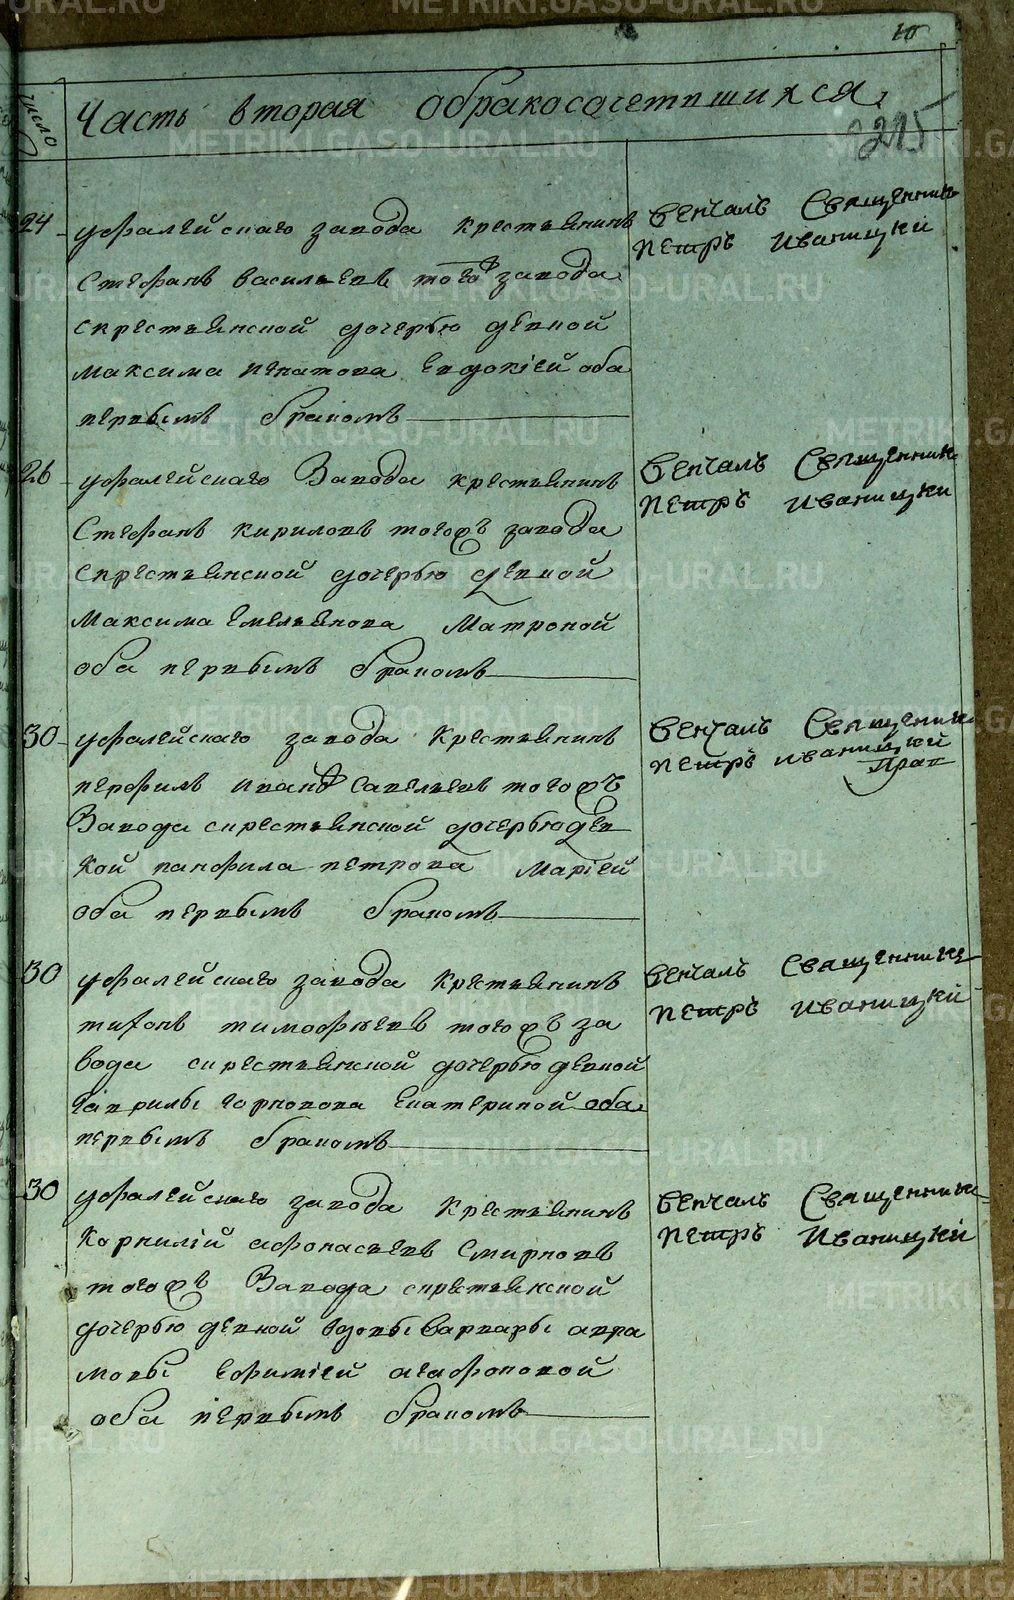 10
число
Часть вторая обракосочетавшихся
215
24
уфалейскаго завода крестьянинъ
Стефанъ васильевъ тогоѫ завода
скрестьянской дочерью девкой
максима Евдокіей оба
первымъ бракомъ
Венчалъ Священникъ
Петръ Иваницкій
26
уфалейскаго Завода крестьянинъ
Стефанъ кириловъ тогожъ завода
скрестьянской дочерью девкой
Максима Емельянова Матроной
оба первымъ бракомъ
Венчалъ Священникъ
Петръ Иваницкій
30
уфалейскаго завода крестьянинъ
перфилъ ивановъ Савельевъ тогожъ
Завода скрестьянской дочерью дев
кой панфила петрова Маріей
оба первымъ бракомъ
Венчалъ Священникъ
Петръ Иваницкій
30
уфалейскаго завода крестьянинъ
тихонъ тимофѣевъ тогожъ за
вода скрестьянской дочерью девкой
гаврилы горновова Екатериной оба
первымъ бракомъ
Венчалъ Священникъ
Петръ Иваницкій
30
уфалейскаго завода крестьянинъ
Корнилій афонасьевъ Смирновъ
тогожъ Завода скрестьянской
дочерью девкой вдовы варвары авра
мовы Ефиміей агафоновой
оба первымъ бракомъ
Венчалъ Священникъ
Петръ Иваницкій
METRIKI.GASO-URAL.RU